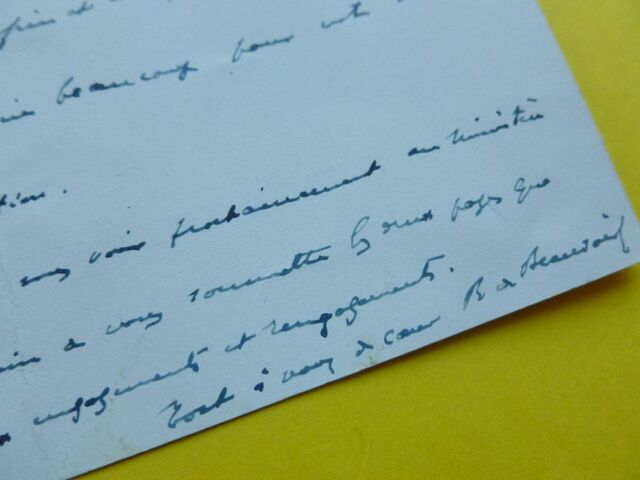 beaucoup pour votre
tion.
vous voir prochainement au Ministère
à vous soumettre les deux pages que
engagements et rengagements.
Tout à vous de cœur R de Beauvoir